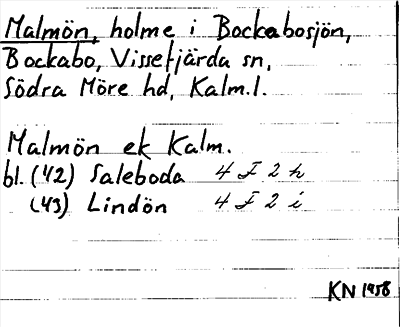 Malmön, holme i Bockabosjön,
Bockabo, Vissefjärda sn,
Södra Möre hd, Kalm.l.
Malmön ek Kalm.
bl. (42) Saleboda 4 F 2 h
(43) Lindön 4 F 2 i
KN 1958